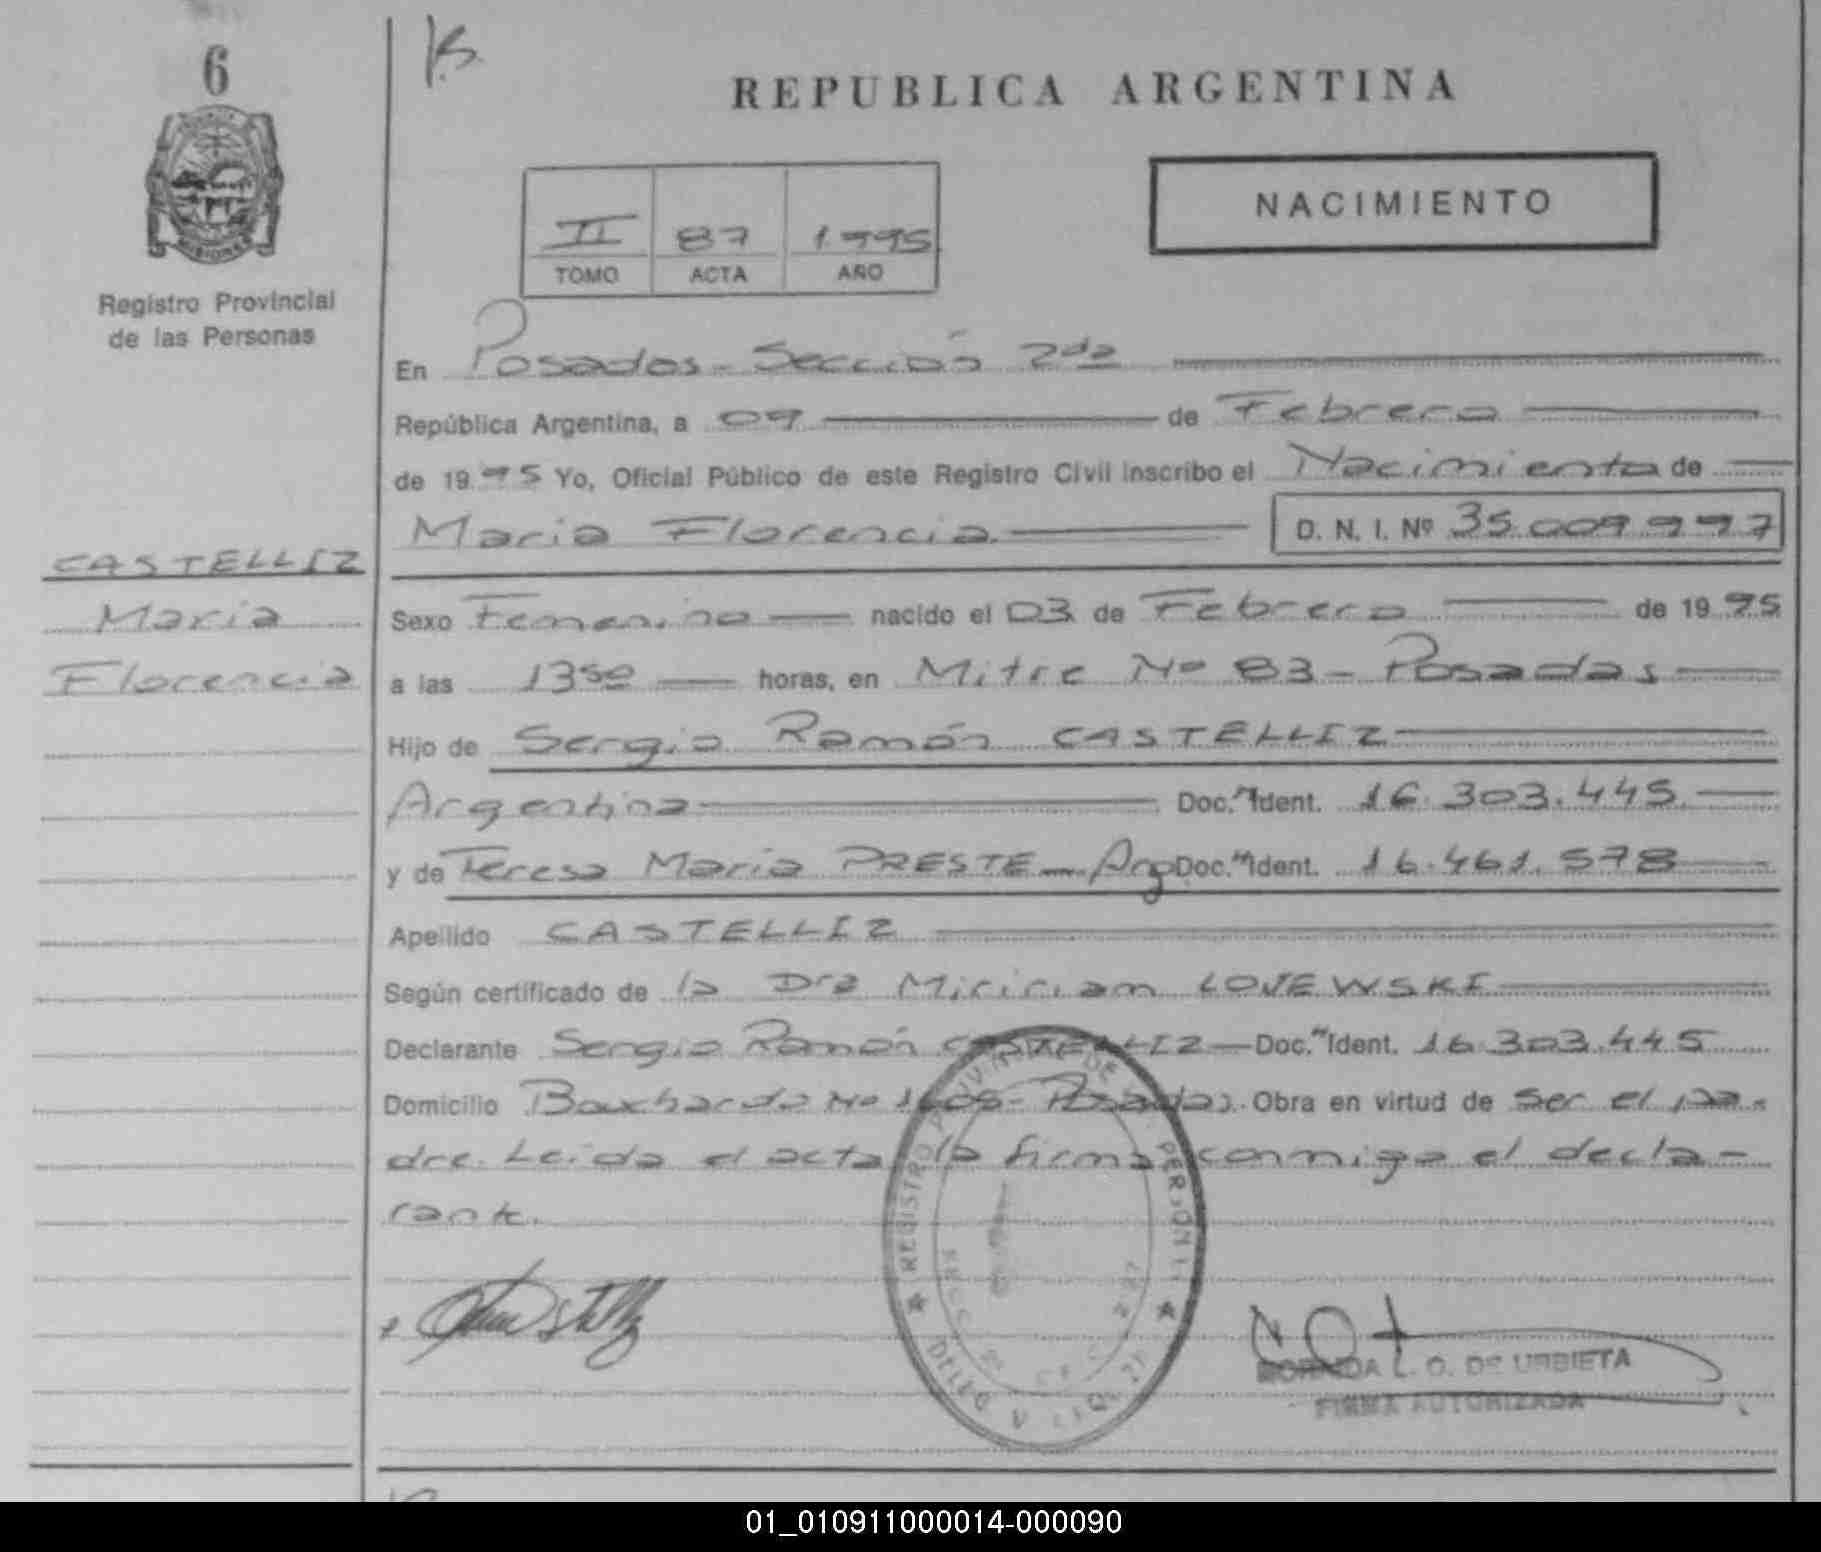 6
REPUBLICA ARGENTINA
MISIONES
Registro Provincial
de las Personas
II 87 1.995
TOMO ACTA AÑO
NACIMIENTO
En Posadas - Sección 2da
República Argentina, a 09 de Febrero
de 1995 Yo, Oficial Público de este Registro Civil inscribo el Nacimiento de
María Florencia. D. N. I. Nº 35.009.997
CASTELLIZ
María
Florencia
Sexo Femenino nacido el 03 de Febrero de 1995
a las 13 50 horas, en Mitre Nº 83 - Posadas
Hijo de Sergio Ramón CASTELLIZ
Argentina Doc. Ident. 16.303.445.
y de Teresa María PRESTE - Arg Doc. Ident. 16.461.578
Apellido CASTELLIZ
Según certificado de la Dra Miririam LOJEWSKI
Declarante Sergio Ramón CASTELLIZ - Doc. Ident. 16.303.445
Domicilio Bouchardo Nº 1608 - Posadas. Obra en virtud de ser el pa-
dre. Leída el acta la firma conmigo el decla-
rante.
REGISTRO DE PERSON
L. O. DE URBIETA
FIRMA AUTORIZADA
01_010911000014-000090